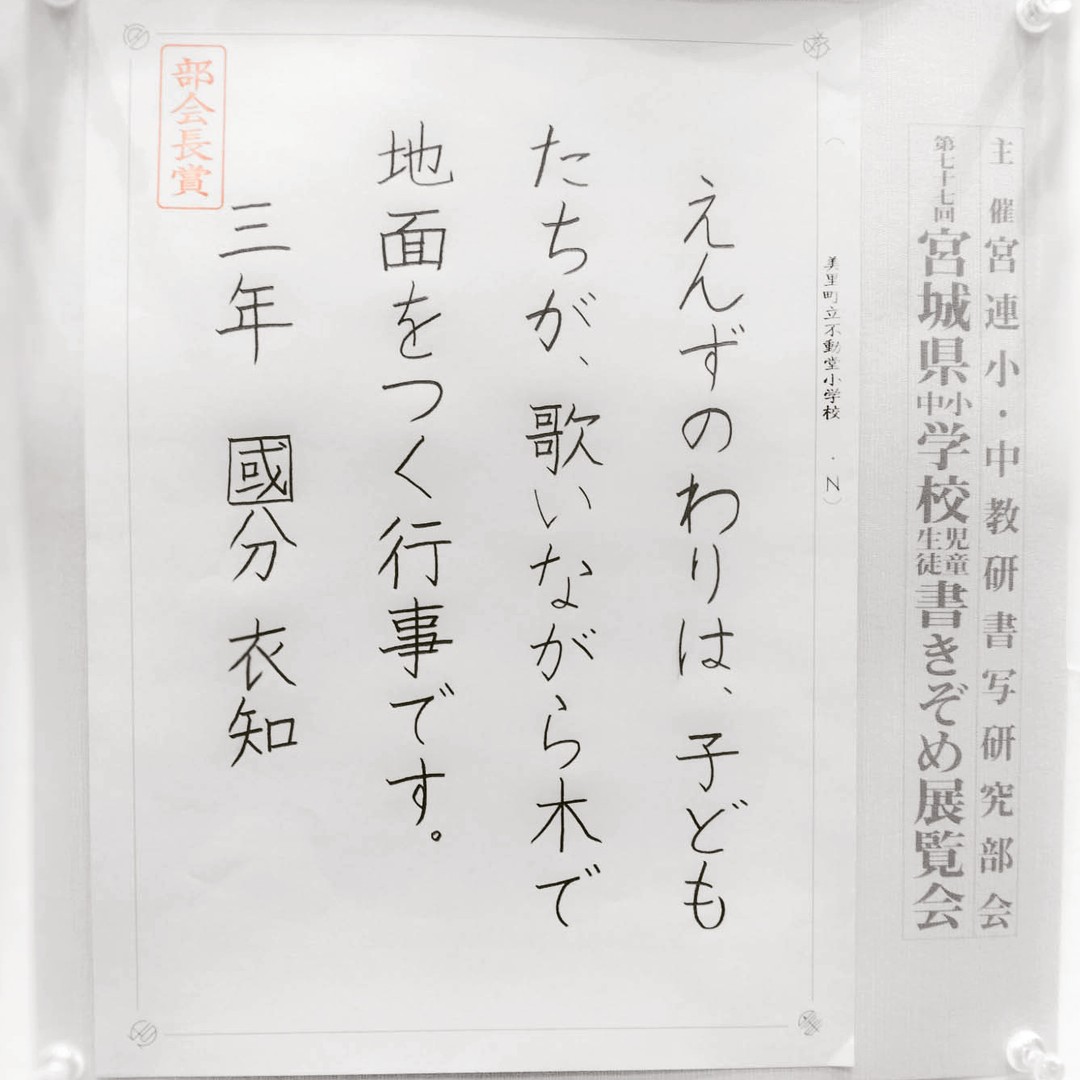 主催 宮連小・中教研書写研究部会
第七十七回 宮城県小中学校児童生徒書きぞめ展覧会
美里町立不動堂小学校 ・N)
えんずのわりは、子ども
たちが、歌いながら木で
地面をつく行事です。
三年 國分 衣知
部会長賞